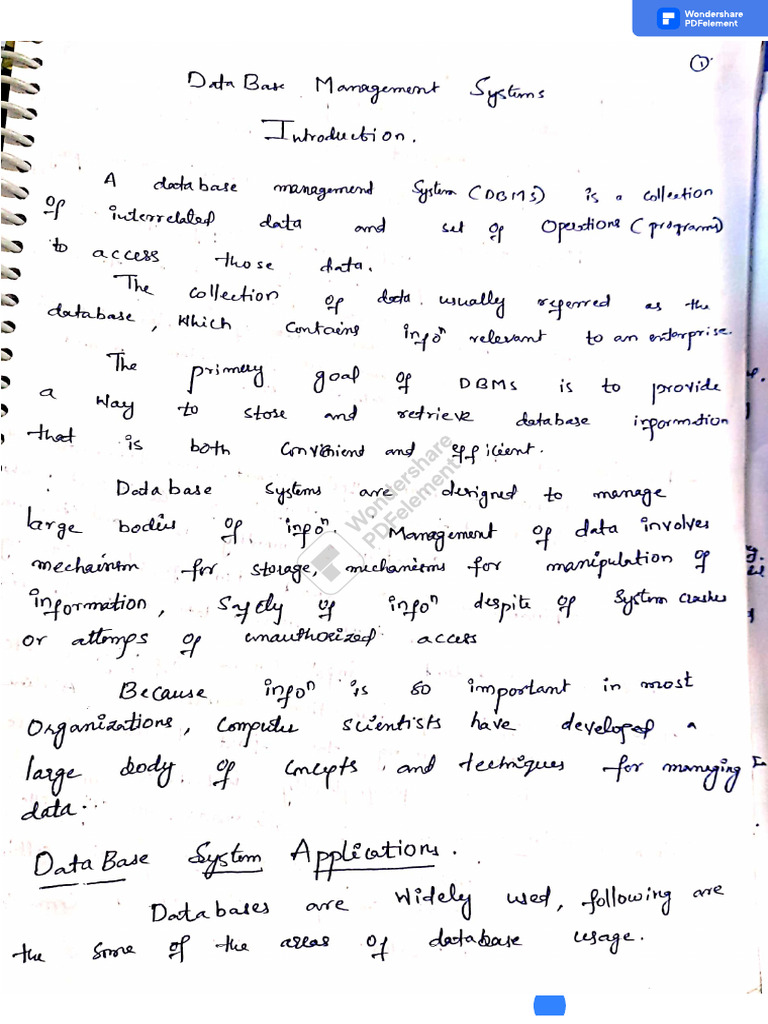 Wondershare
PDFelement
1
Data Base Management Systems
Introduction.
A database management System (DBMS) is a collection
of interrelated data and set of Operations (programs)
to access those data.
The collection of data usually referred as the
database, Which contains infoⁿ relevant to an enterprise.
The primary goal of DBMS is to provide
a Way to store and retrieve database information
that is both convinient and efficient.
Database Systems are designed to manage
large bodies of infoⁿ. Management of data involves
mechainsm for storage, mechanisms for manipulation of
information, Safety of infoⁿ despite of System crashes
or attemps of unauthorized access
Because infoⁿ is so important in most
Organizations, Computer scientists have developed a
large body of concepts and techniques for managing
data.
Wondershare
PDFelement
Data Base System Applications.
Databases are Widely used, following are
the some of the areas of database usage.